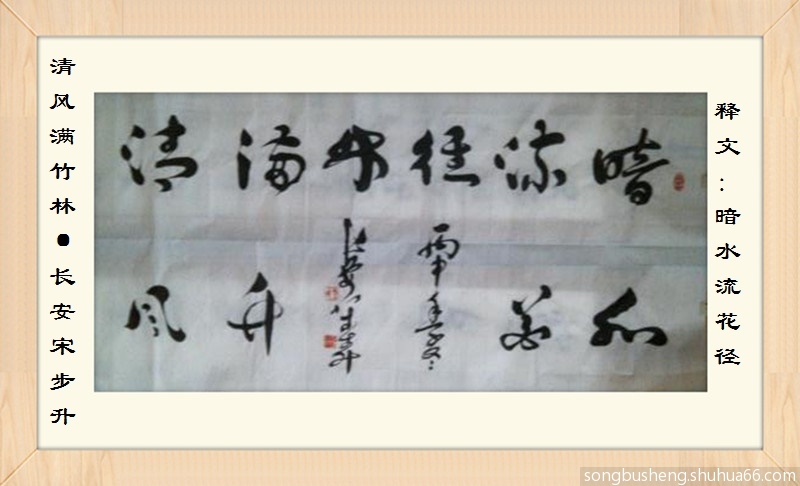 释文：暗水流花径
清风满竹林●长安宋步升
暗水
流花
径
清风
满竹
林
丙申年冬
长安宋步升
songbusheng.shuhua66.com